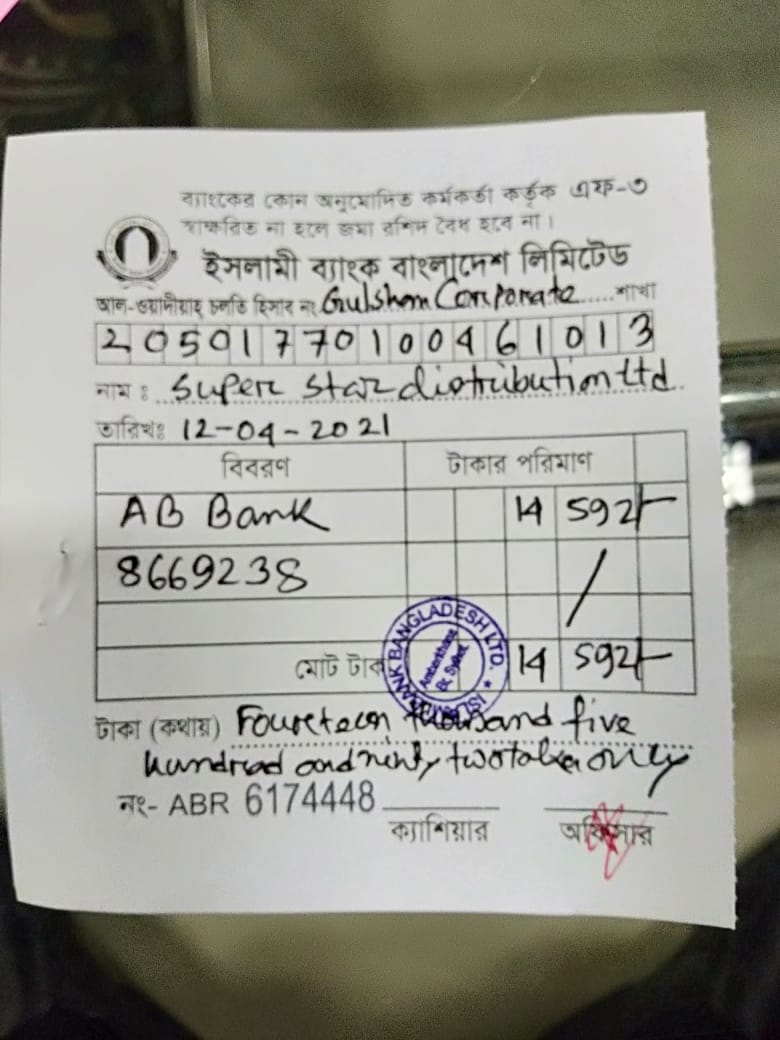 ব্যাংকের কোন অনুমোদিত কর্মকর্তা কর্তৃক এফ-৩
স্বাক্ষরিত না হলে জমা রশিদ বৈধ হবে না।
ইসলামী ব্যাংক বাংলাদেশ লিমিটেড
আল-ওয়াদীয়াহ্ চলতি হিসাব নং Gulshan Corporate শাখা
20501770100461013
নাম : Super Star distribution Ltd
তারিখঃ 12-04-2021
বিবরণ টাকার পরিমাণ
AB Bank 14 592/-
8669238 /
মোট টাকা 14 592/-
ISLAMI BANK BANGLADESH LTD.
Amberkhana
Br. Sylhet
টাকা (কথায়) Fourteen thousand five
hundred and ninty two taka only
নং- ABR 6174448
ক্যাশিয়ার অফিসার